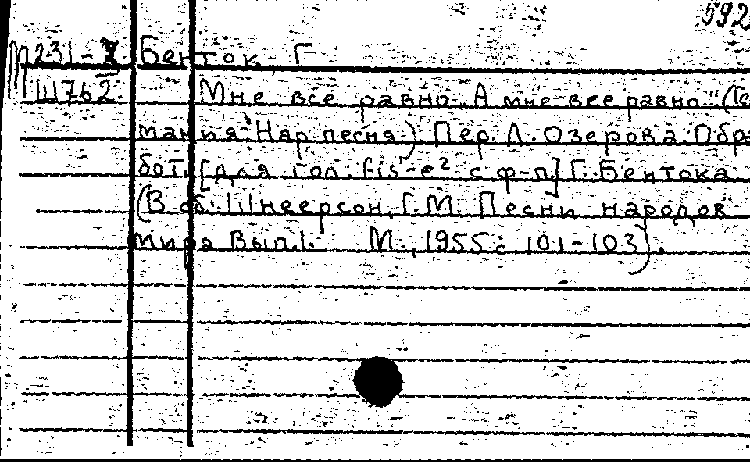 592
М231-I Бенток, Г
Ш762 Мне все равно. "А мне все равно" (Гер
мания. Нар песня) Пер. Л. Озерова Обра
бот. [для гол. fis¹-e² с ф-п] Г. Бентока
(В сб. Шнеерсон, Г.М. Песни народов
мира Вып.1. М., 1955 с 101-103).